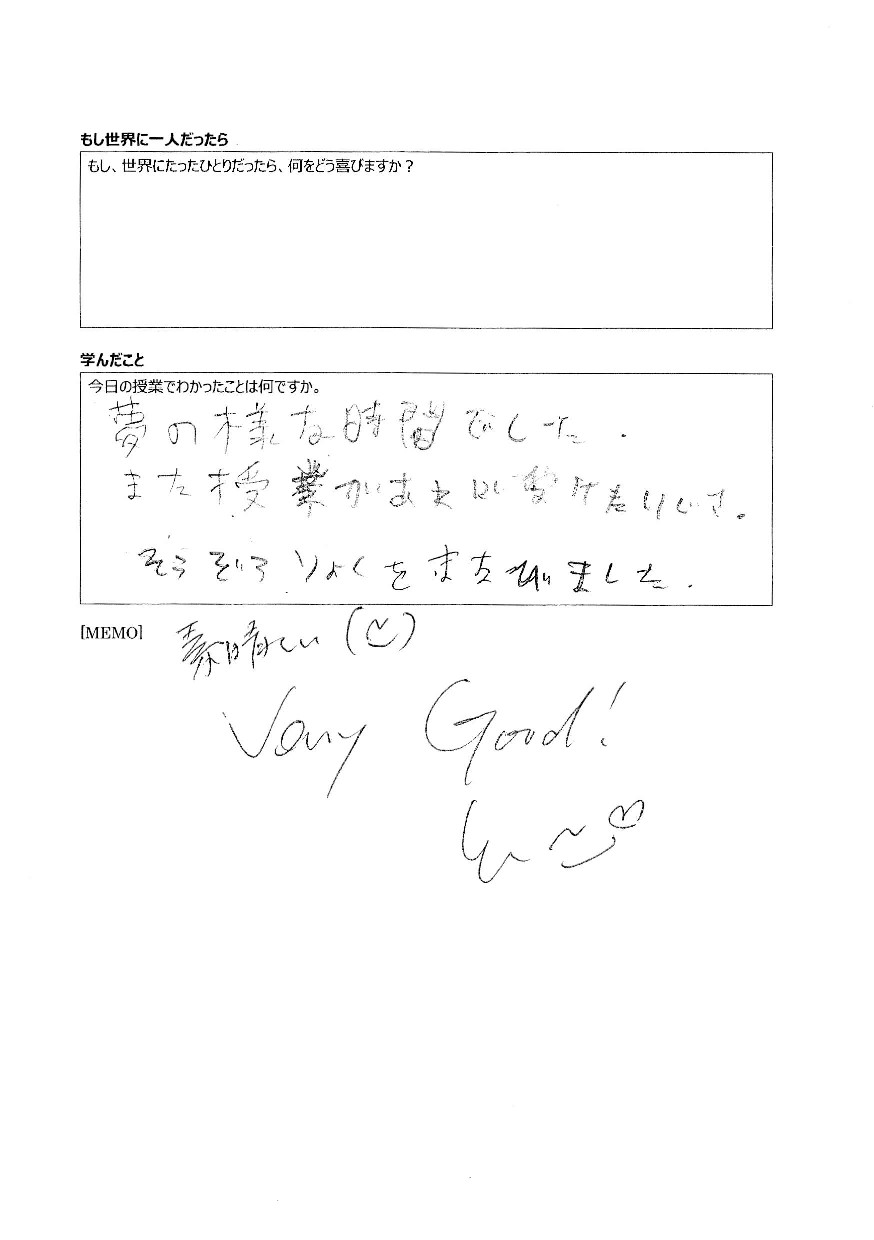 もし世界に一人だったら
もし、世界にたったひとりだったら、何をどう喜びますか？
学んだこと
今日の授業でわかったことは何ですか。
夢の様な時間でした.
また授業があれば受けたいです。
そうぞうりょくを
ました.
[MEMO]
素晴しい
Very Good!